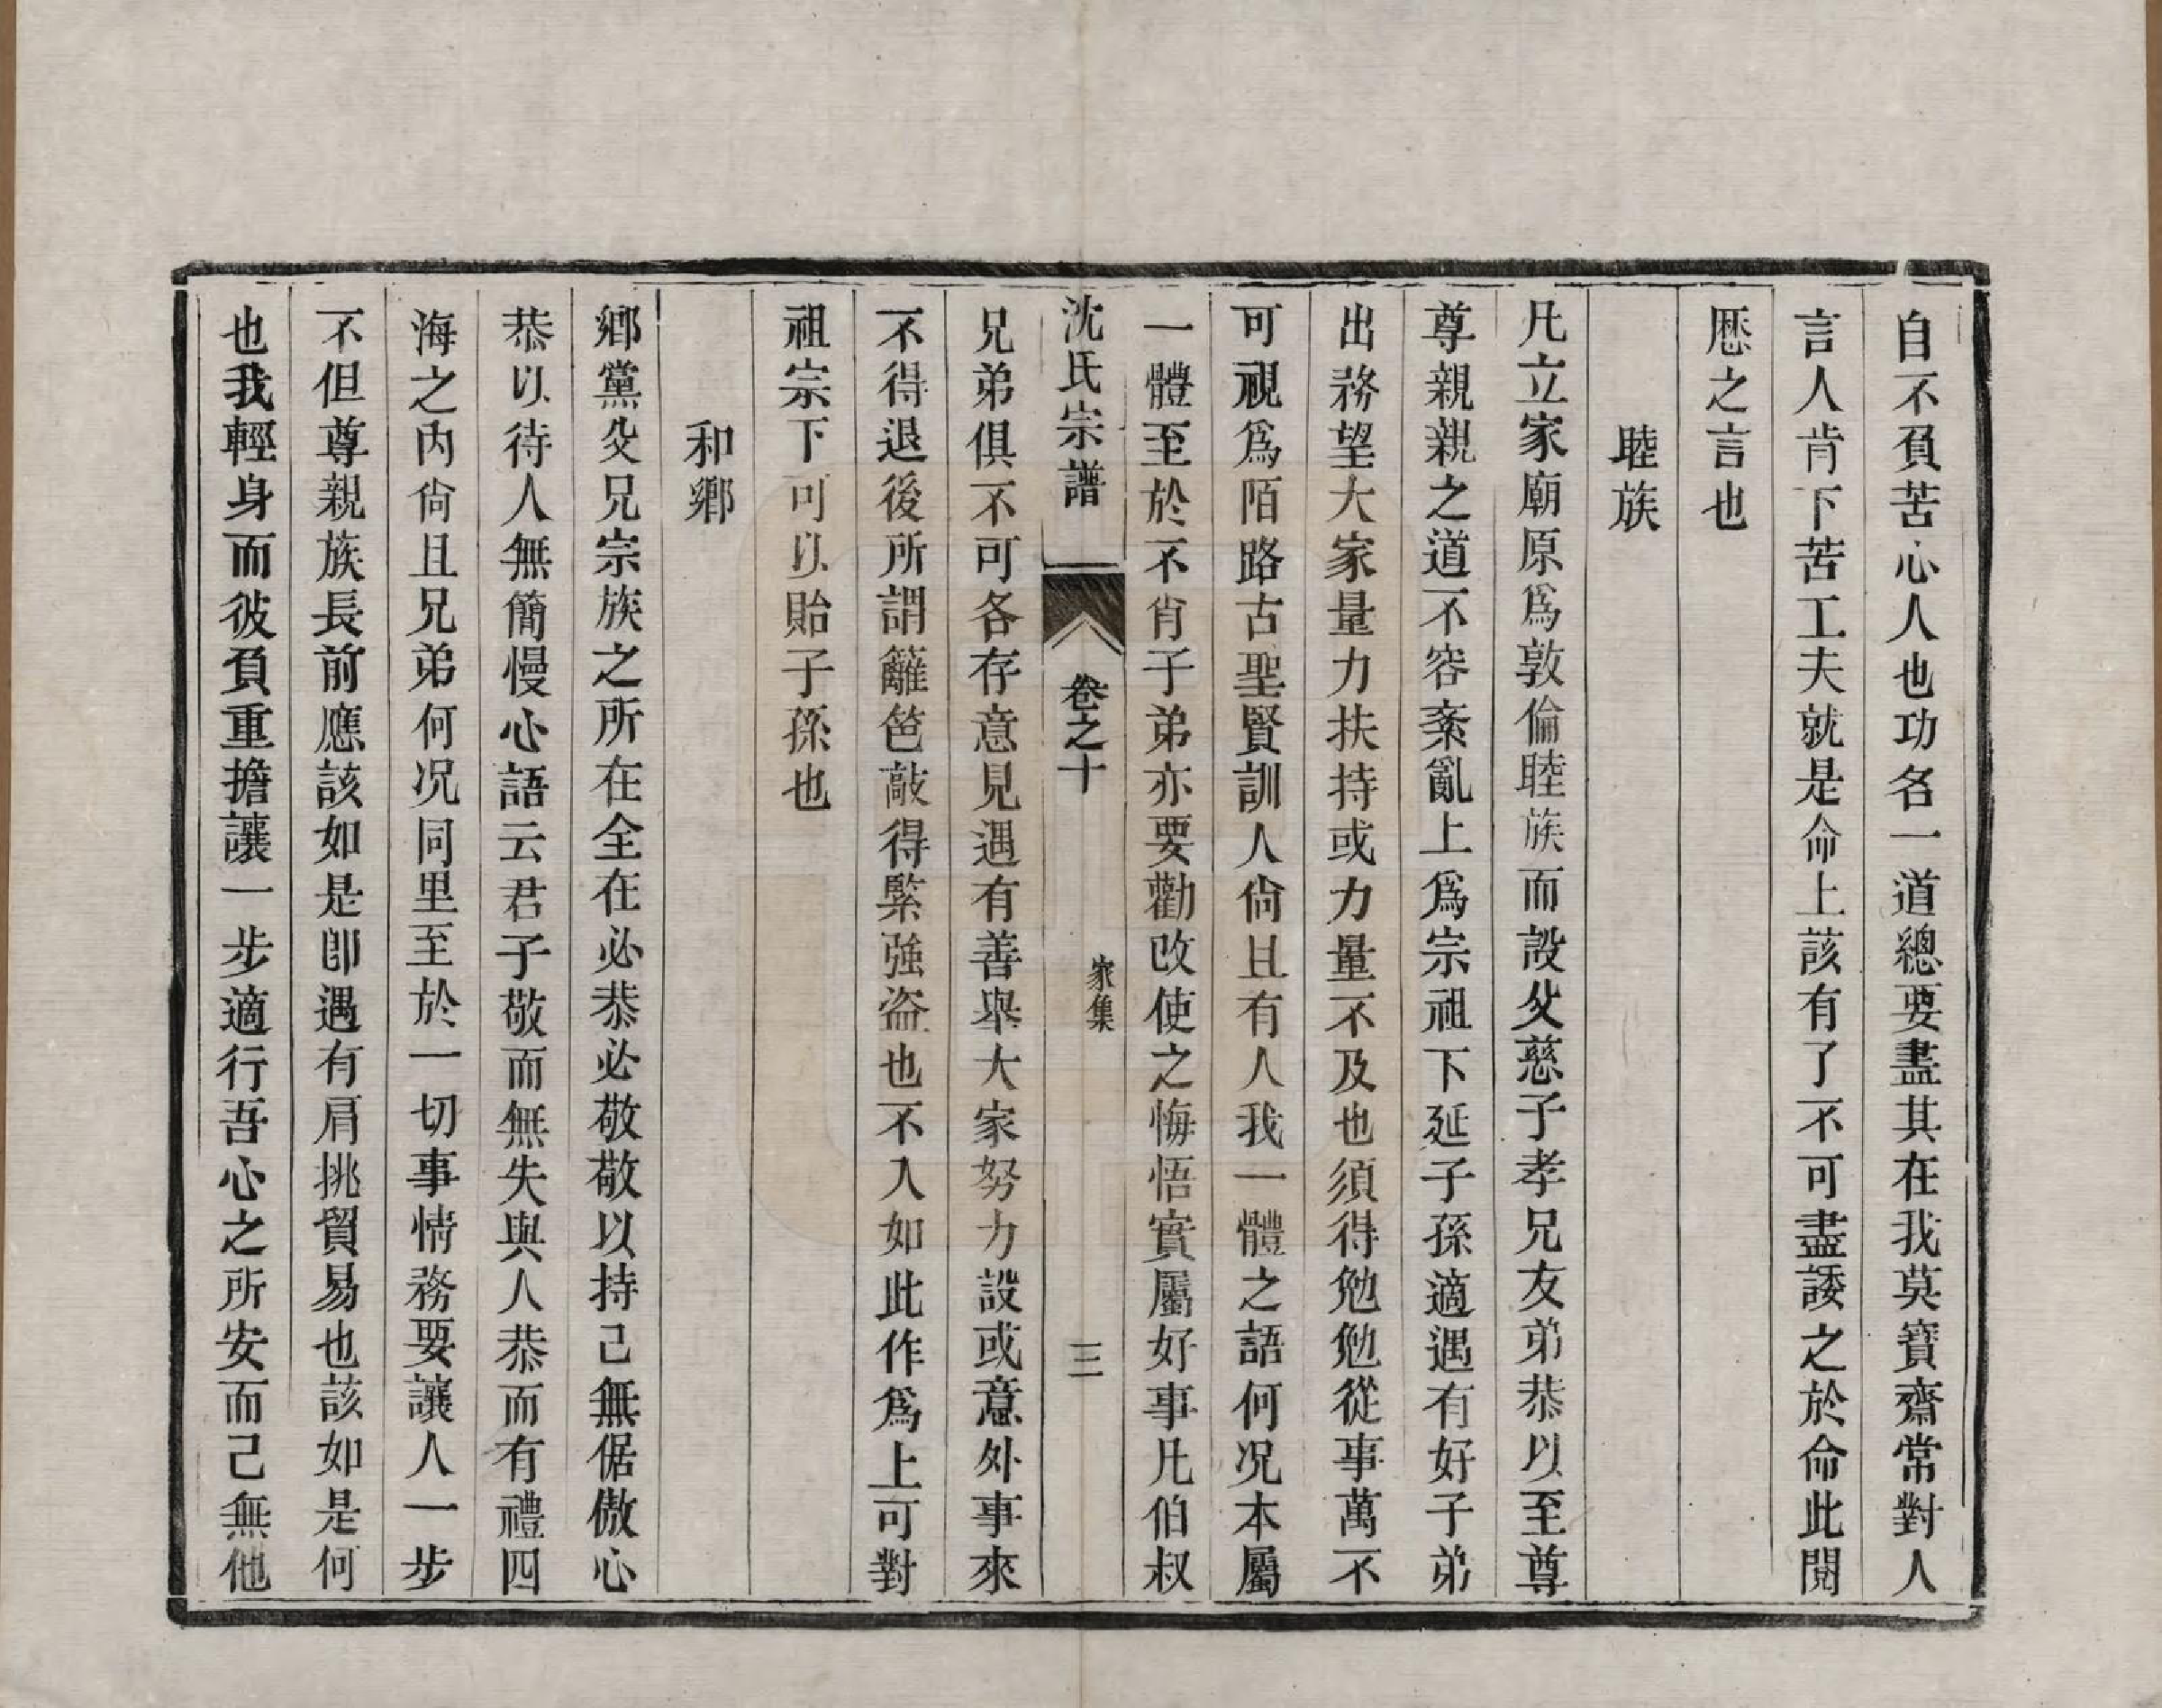 自不負苦心人也功名一道總要盡其在我莫寳齋常對人
言人肯下苦工夫就是命上該有了不可盡諉之於命此閱
歷之言也
睦族
凡立家廟原爲敦倫睦族而設父慈子孝兄友弟恭以至尊
尊親親之道不容紊亂上爲宗祖下延子孫適遇有好子弟
出務望大家量力扶持或力量不及也須得勉勉從事萬不
可視爲陌路古聖賢訓人尙且有人我一體之語何况本屬
一體至於不肖子弟亦要勸改使之悔悟實屬好事凡伯叔
沈氏宗譜
卷之十
家集
三
兄弟俱不可各存意見遇有善舉大家努力設或意外事來
不得退後所謂籬笆敲得緊強盜也不入如此作爲上可對
祖宗下可以貽子孫也
和鄉
鄉黨父兄宗族之所在全在必恭必敬敬以持己無倨傲心
恭以待人無簡慢心語云君子敬而無失與人恭而有禮四
海之內尙且兄弟何况同里至於一切事情務要讓人一步
不但尊親族長前應該如是卽遇有肩挑貿易也該如是何
也我輕身而彼負重擔讓一步適行吾心之所安而己無他